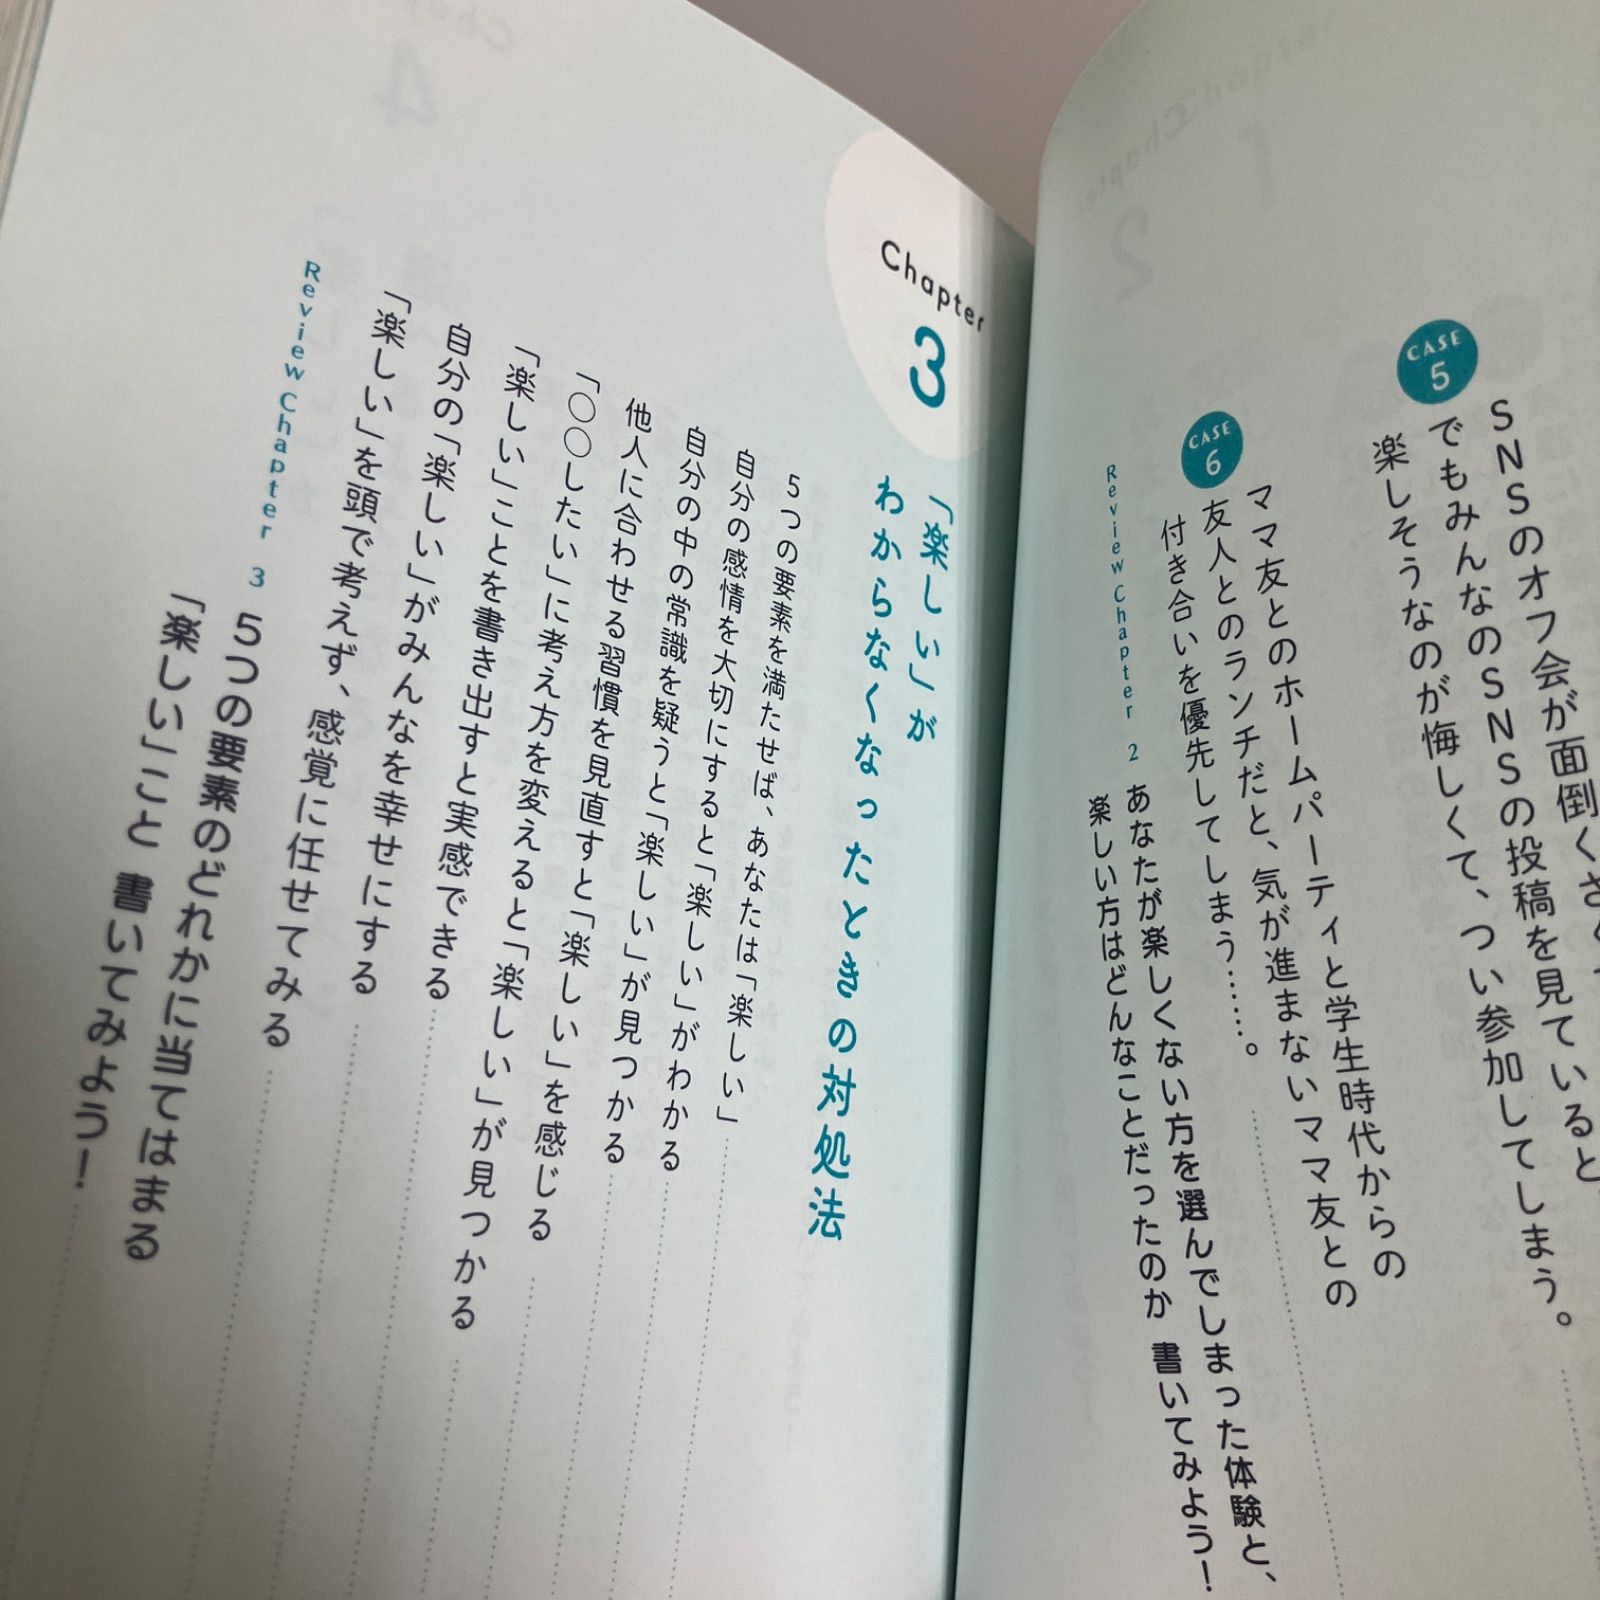 CASE 5
SNSのオフ会が面倒くさ
でもみんなのSNSの投稿を見ていると、
楽しそうなのが悔しくて、つい参加してしまう。
CASE 6
ママ友とのホームパーティと学生時代からの
友人とのランチだと、気が進まないママ友との
付き合いを優先してしまう……。
Review Chapter 2 あなたが楽しくない方を選んでしまった体験と、
楽しい方はどんなことだったのか 書いてみよう!
Chapter 3
「楽しい」が
わからなくなったときの対処法
5つの要素を満たせば、あなたは「楽しい」
自分の感情を大切にすると「楽しい」がわかる
自分の中の常識を疑うと「楽しい」が見つかる
他人に合わせる習慣を見直すと「楽しい」を感じる
「○○したい」に考え方を変えると「楽しい」が見つかる
「楽しい」ことを書き出すと実感できる
自分の「楽しい」がみんなを幸せにする
「楽しい」を頭で考えず、感覚に任せてみる
Review Chapter 3 5つの要素のどれかに当てはまる
「楽しい」こと 書いてみよう!